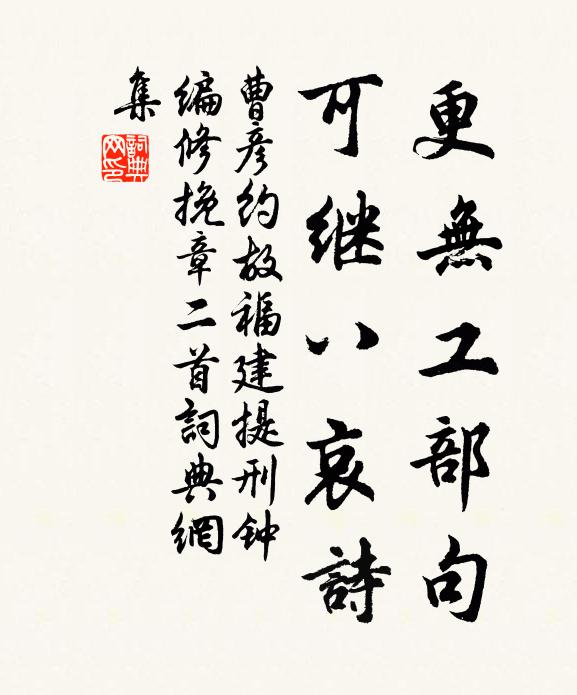 更無工部句
可继八哀詩
曹彦约故福建提刑钟
编修挽章二首詞典網
集
詞典网印